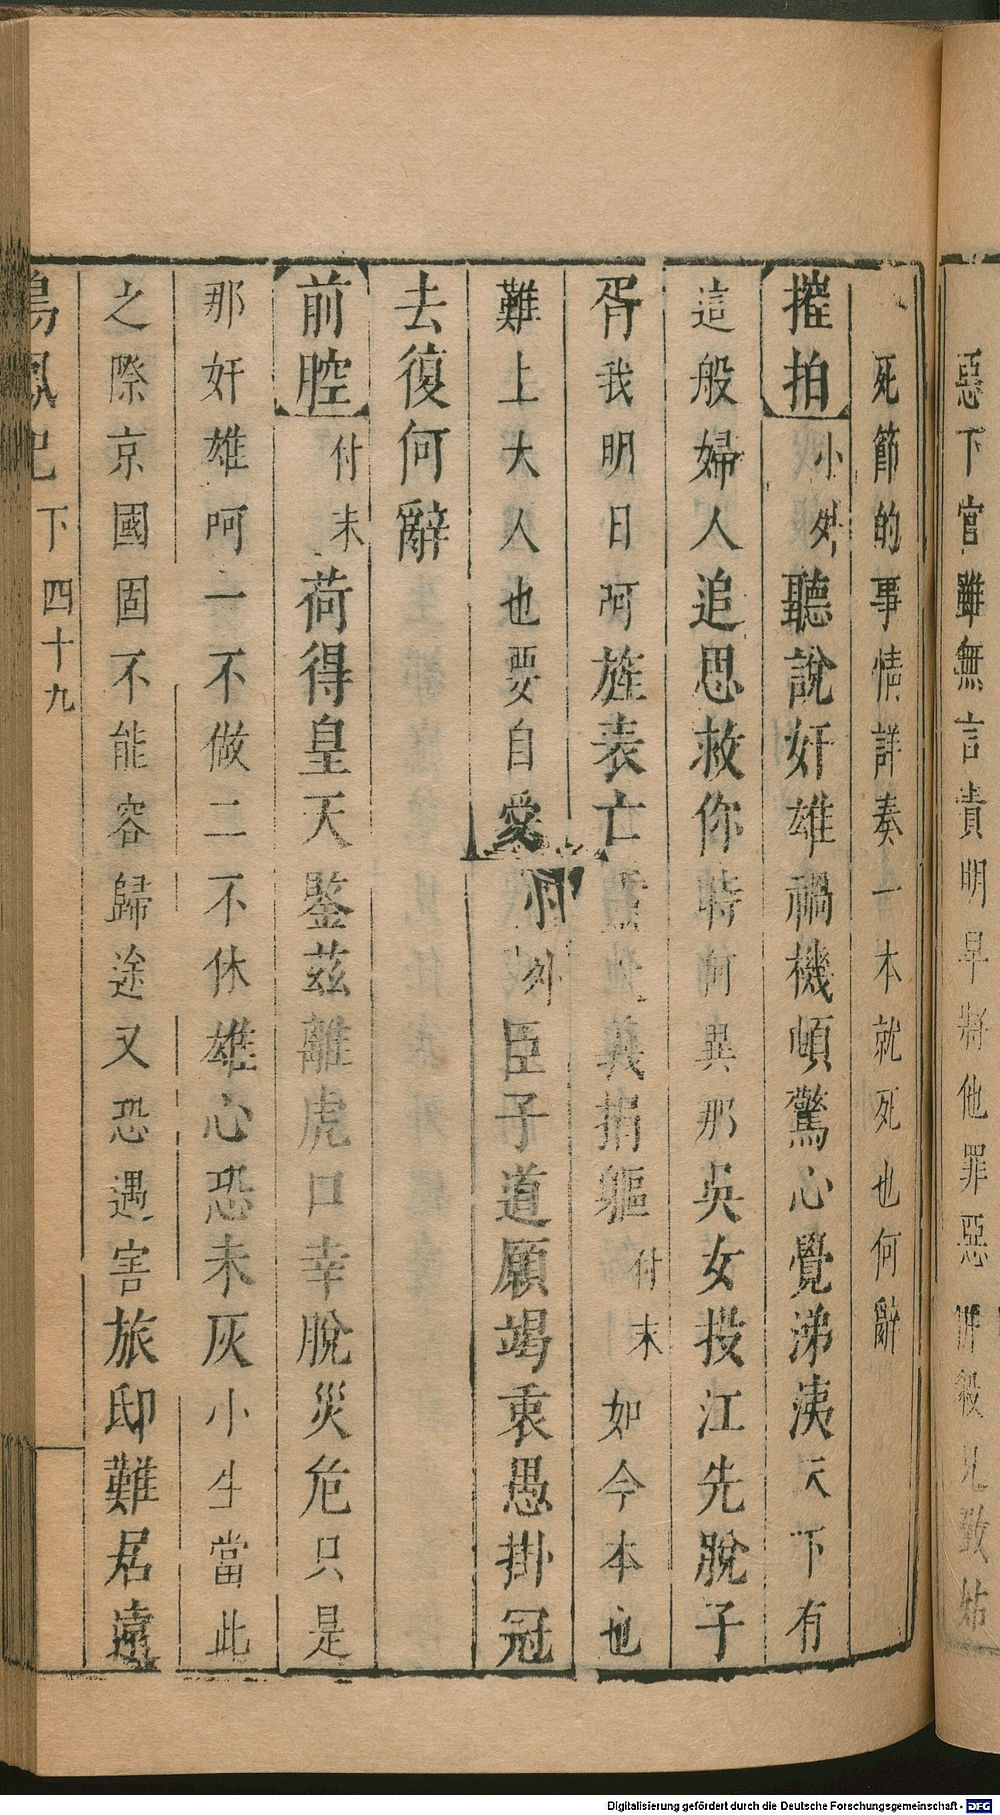 惡下官雖無言責明早將他罪惡
死節的事情詳奏一本就死也何辭
摧拍 小外 聽說奸雄禍機頓驚心覺涕洟天下有
這般婦人追思救你時何異那吳女投江先脫子
胥我明日阿旌表亡 義捐軀 付末 如今本也
難上大人也要自愛 外 臣子道願竭衷愚掛冠
去復何辭
前腔 付末 荷得皇天鑒茲離虎口幸脫災危只是
那奸雄呵一不做二不休雄心恐未灰小生當此
之際京國固不能容歸途又恐遇害旅邸難居遠
鳴鳳記 下 四十九
Digitalisierung gefördert durch die Deutsche Forschungsgemeinschaft - DFG